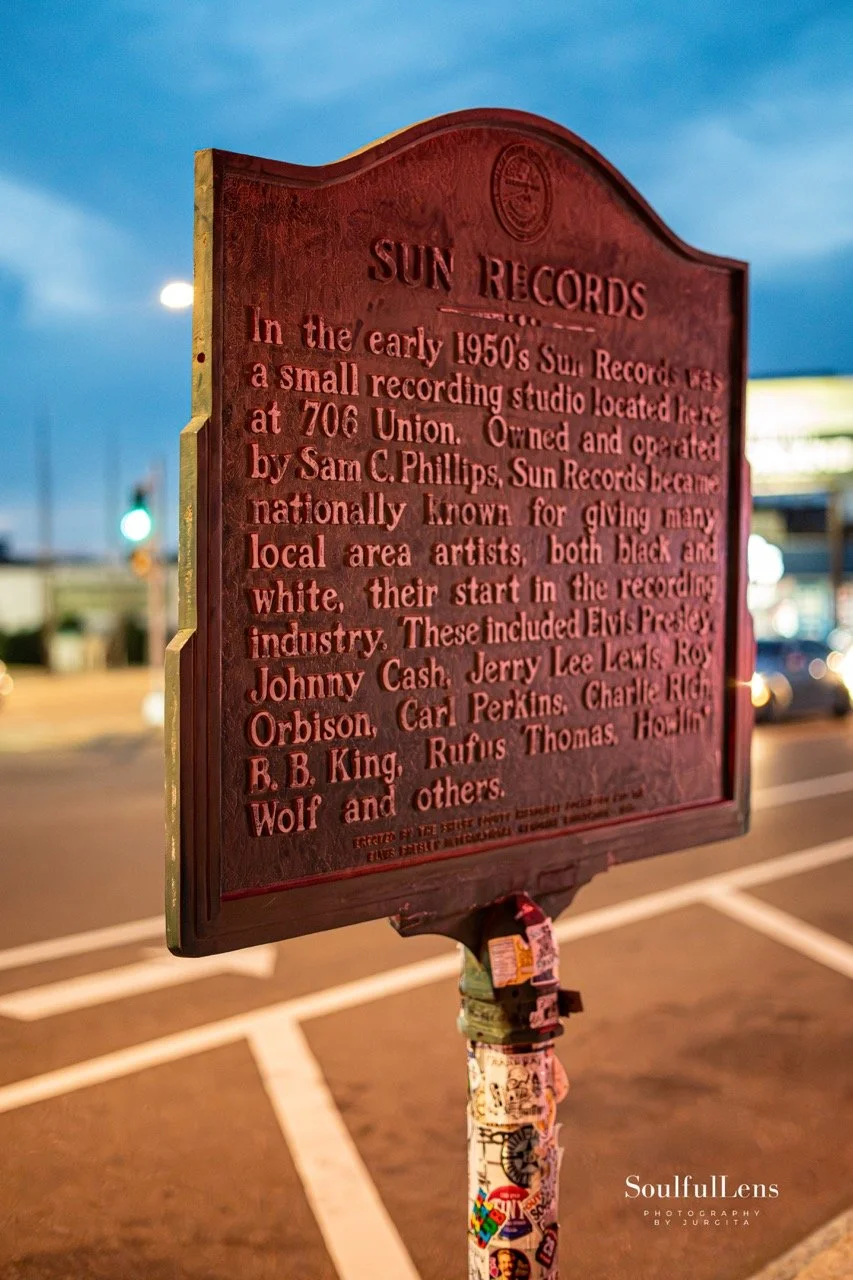 SUN RECORDS
In the early 1950's Sun Records was
a small recording studio located here
at 706 Union. Owned and operated
by Sam C. Phillips, Sun Records became
nationally known for giving many
local area artists, both black and
white, their start in the recording
industry. These included Elvis Presley,
Johnny Cash, Jerry Lee Lewis, Roy
Orbison, Carl Perkins, Charlie Rich,
B. B. King, Rufus Thomas, Howlin'
Wolf and others.
ERECTED BY THE SHELBY COUNTY
ELVIS PRESLEY INTERNATIONAL MEMORIAL
SoulfulLens
PHOTOGRAPHY
BY JURGITA